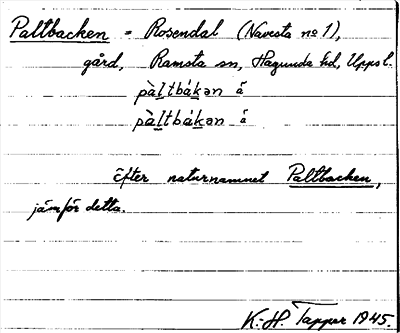 Paltbacken = Rosendal (Navesta nº 1),
gård, Ramsta sn, Hagunda hd, Uppsl.
pàltbákən å
pàltbákən å
Efter naturnamnet Paltbacken,
jämför detta.
K.-H. Tapper 1945.